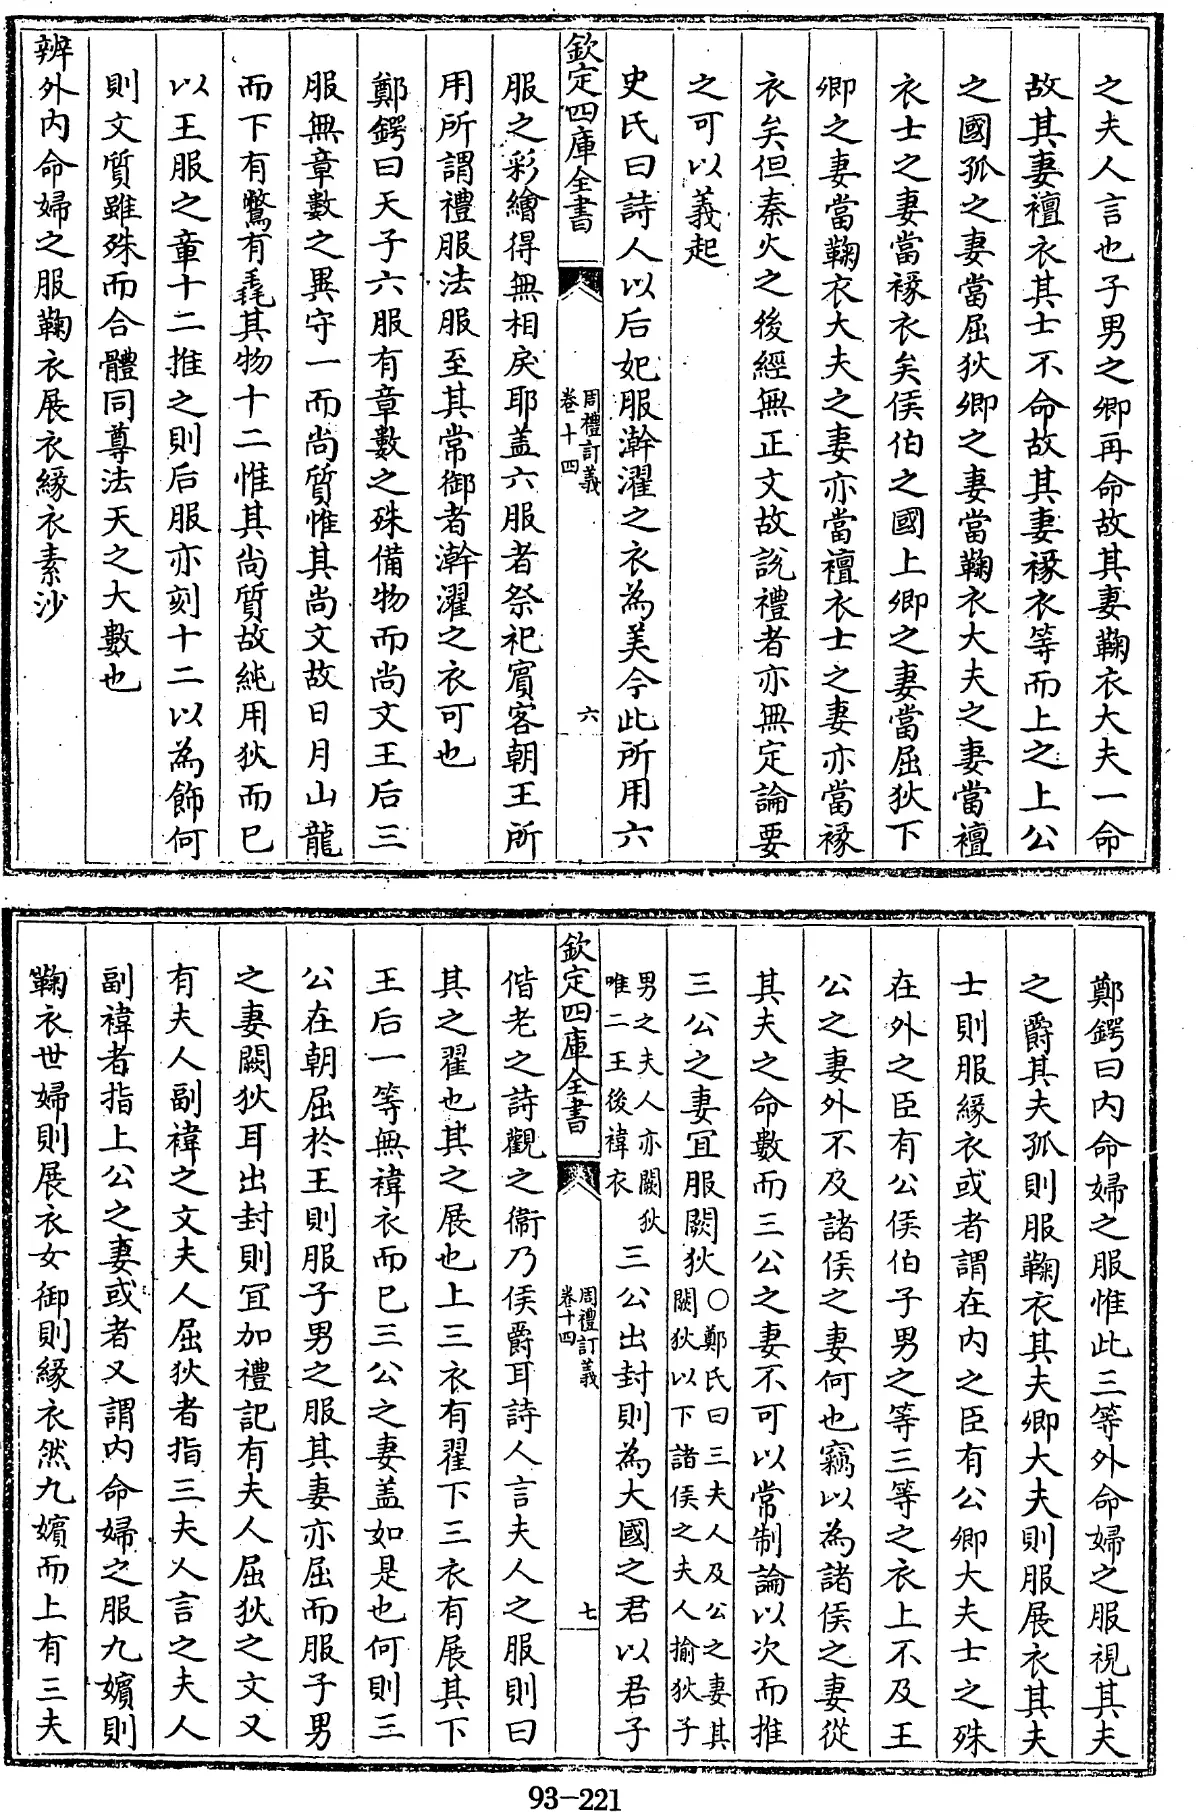 之夫人言也子男之卿再命故其妻鞠衣大夫一命
故其妻襢衣其士不命故其妻褖衣等而上之上公
之國孤之妻當屈狄卿之妻當鞠衣大夫之妻當襢
衣士之妻當褖衣矣侯伯之國上卿之妻當屈狄下
卿之妻當鞠衣大夫之妻亦當襢衣士之妻亦當褖
衣矣但秦火之後經無正文故說禮者亦無定論要
之可以義起
史氏曰詩人以后妃服澣濯之衣為美今此所用六
欽定四庫全書
周禮訂義
卷十四
六
服之彩繪得無相戾耶蓋六服者祭祀賓客朝王所
用所謂禮服法服至其常御者澣濯之衣可也
鄭鍔曰天子六服有章數之殊備物而尚文王后三
服無章數之異守一而尚質惟其尚文故日月山龍
而下有鷩有毳其物十二惟其尚質故純用狄而已
以王服之章十二推之則后服亦刻十二以為飾何
則文質雖殊而合體同尊法天之大數也
辨外內命婦之服鞠衣展衣緣衣素沙
鄭鍔曰內命婦之服惟此三等外命婦之服視其夫
之爵其夫孤則服鞠衣其夫卿大夫則服展衣其夫
士則服緣衣或者謂在內之臣有公卿大夫士之殊
在外之臣有公侯伯子男之等三等之衣上不及王
公之妻外不及諸侯之妻何也竊以為諸侯之妻從
其夫之命數而三公之妻不可以常制論以次而推
三公之妻宜服闕狄○鄭氏曰三夫人及公之妻其
闕狄以下諸侯之夫人揄狄子
男之夫人亦闕狄
唯二王後褘衣
三公出封則為大國之君以君子
欽定四庫全書
周禮訂義
卷十四
七
偕老之詩觀之衞乃侯爵耳詩人言夫人之服則曰
其之翟也其之展也上三衣有翟下三衣有展其下
王后一等無褘衣而已三公之妻蓋如是也何則三
公在朝屈於王則服子男之服其妻亦屈而服子男
之妻闕狄耳出封則宜加禮記有夫人屈狄之文又
有夫人副褘之文夫人屈狄者指三夫人言之夫人
副褘者指上公之妻或者又謂內命婦之服九嬪則
鞠衣世婦則展衣女御則緣衣然九嬪而上有三夫
93-221